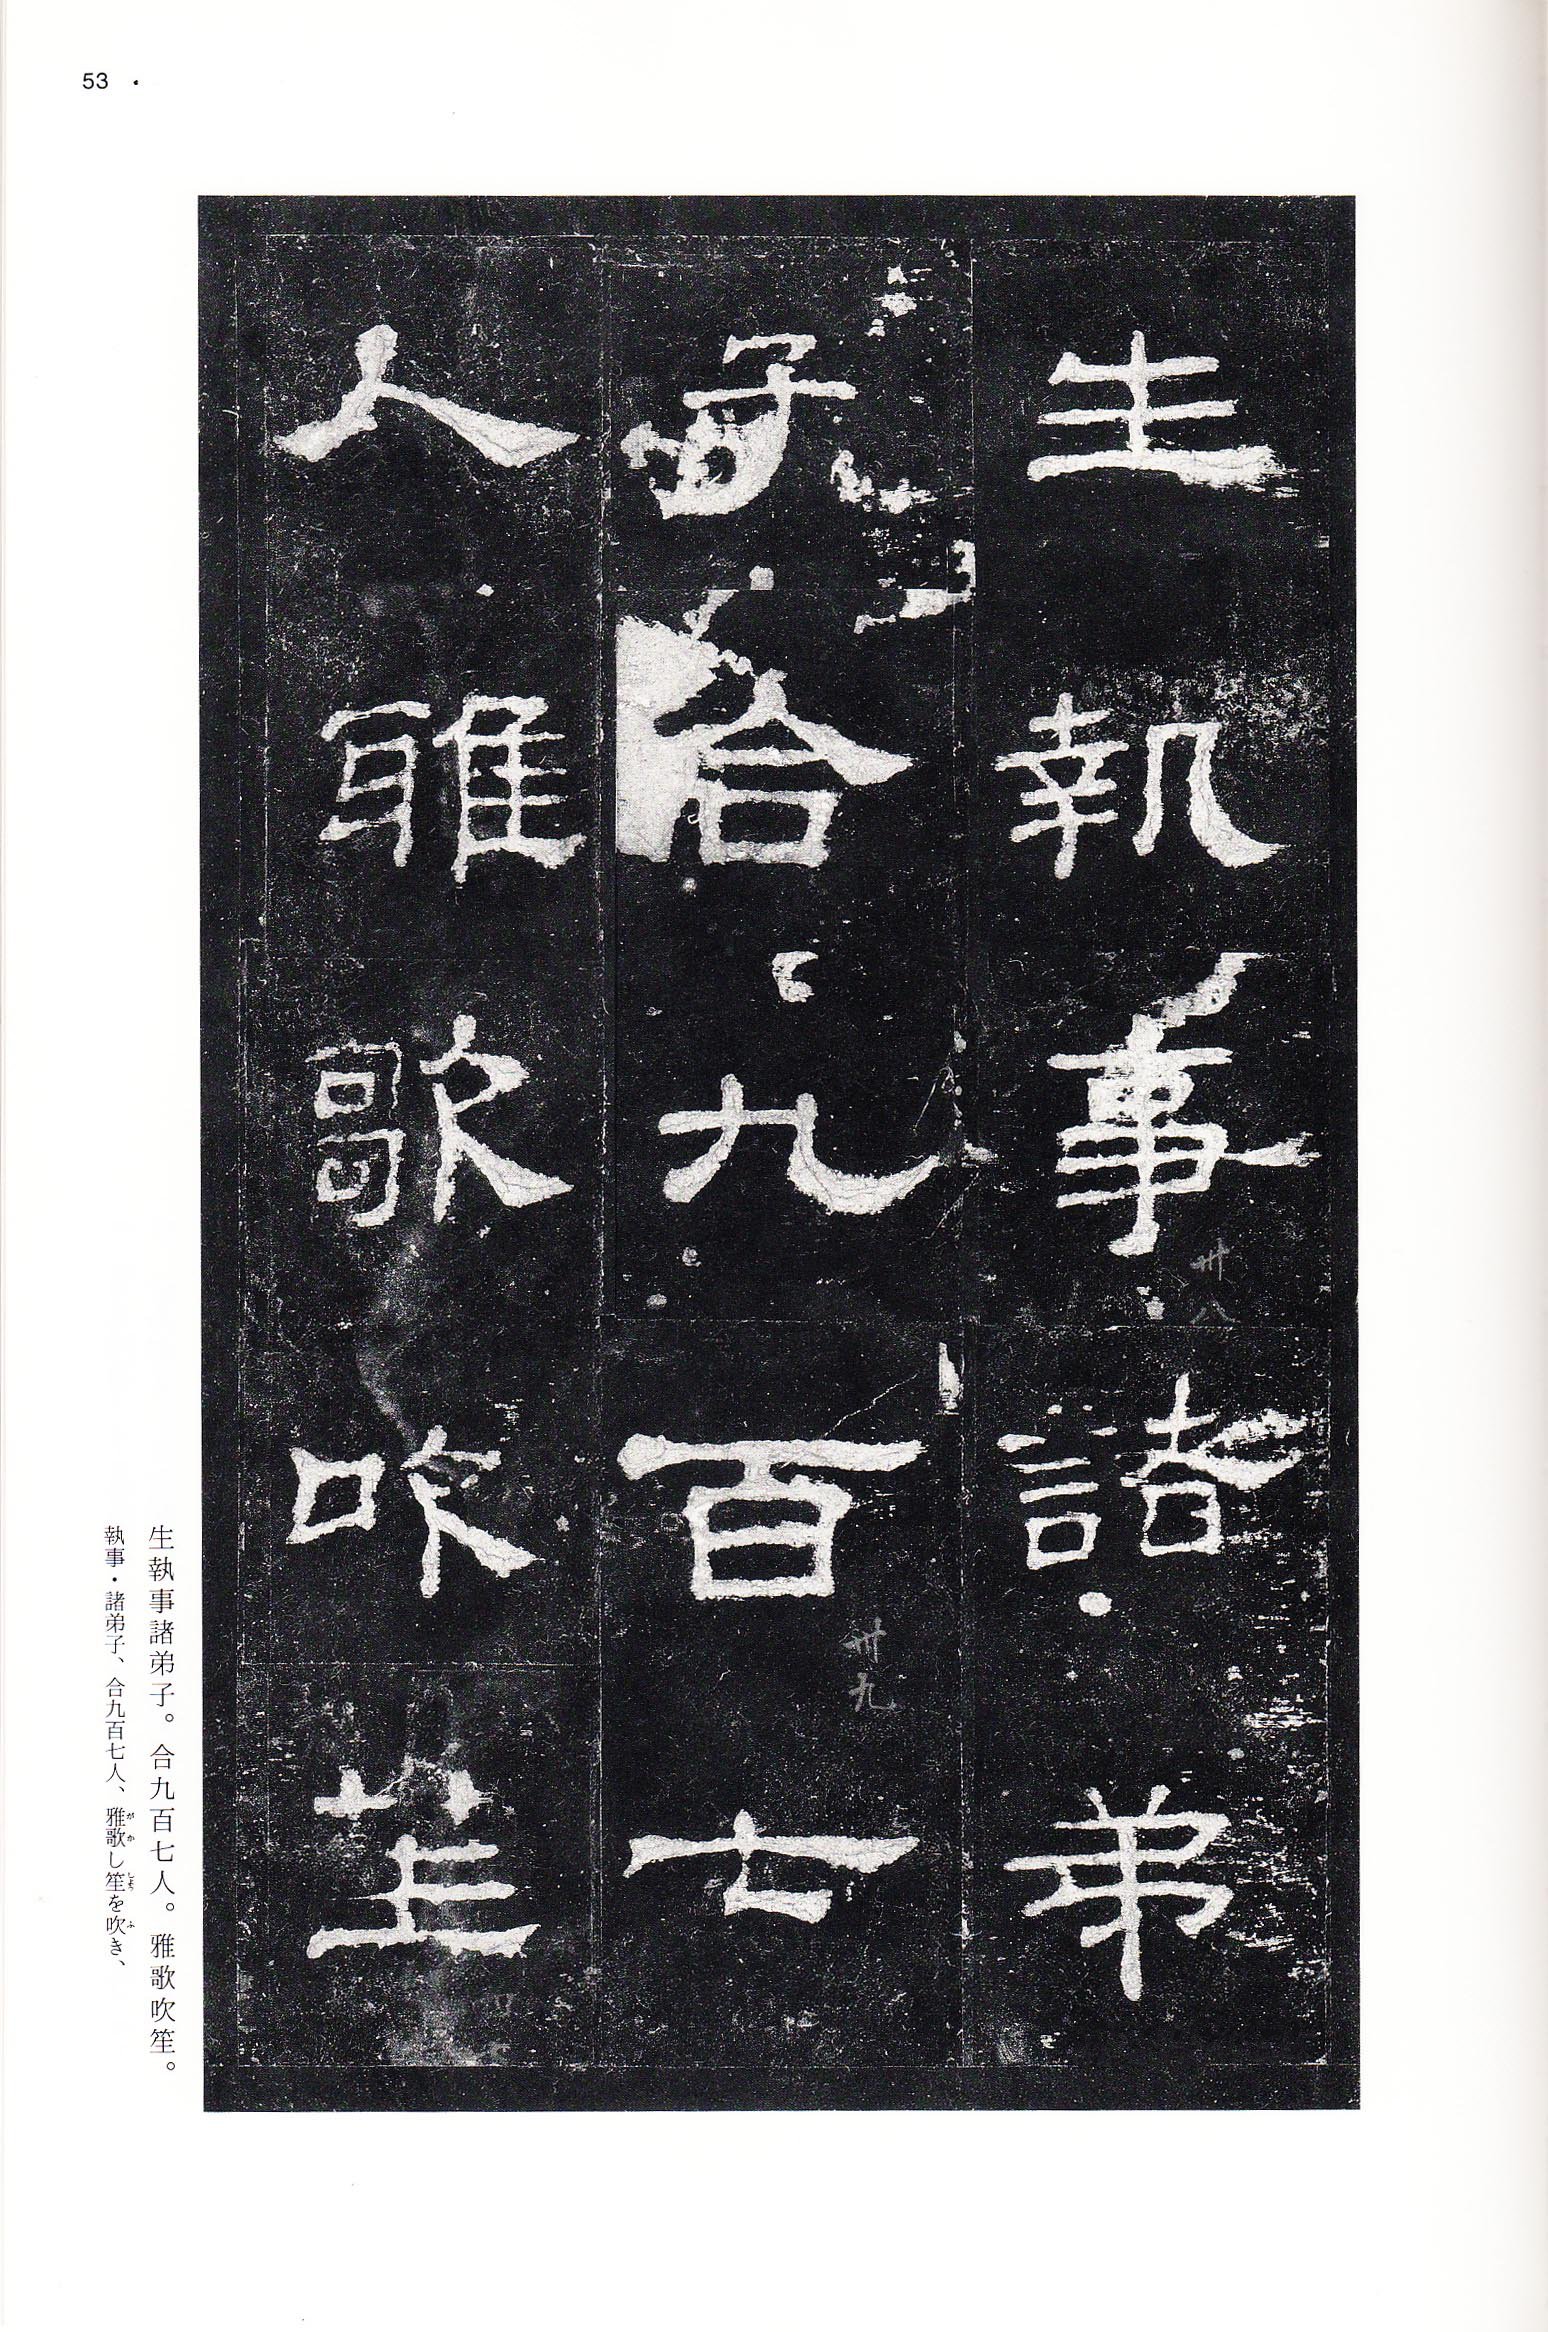 53
生執事諸弟
子合九百七
人雅歌吹笙
卅八
卅九
生執事諸弟子。合九百七人。雅歌吹笙。
執事・諸弟子、合九百七人、雅歌し笙を吹き、
がか しょう ふ